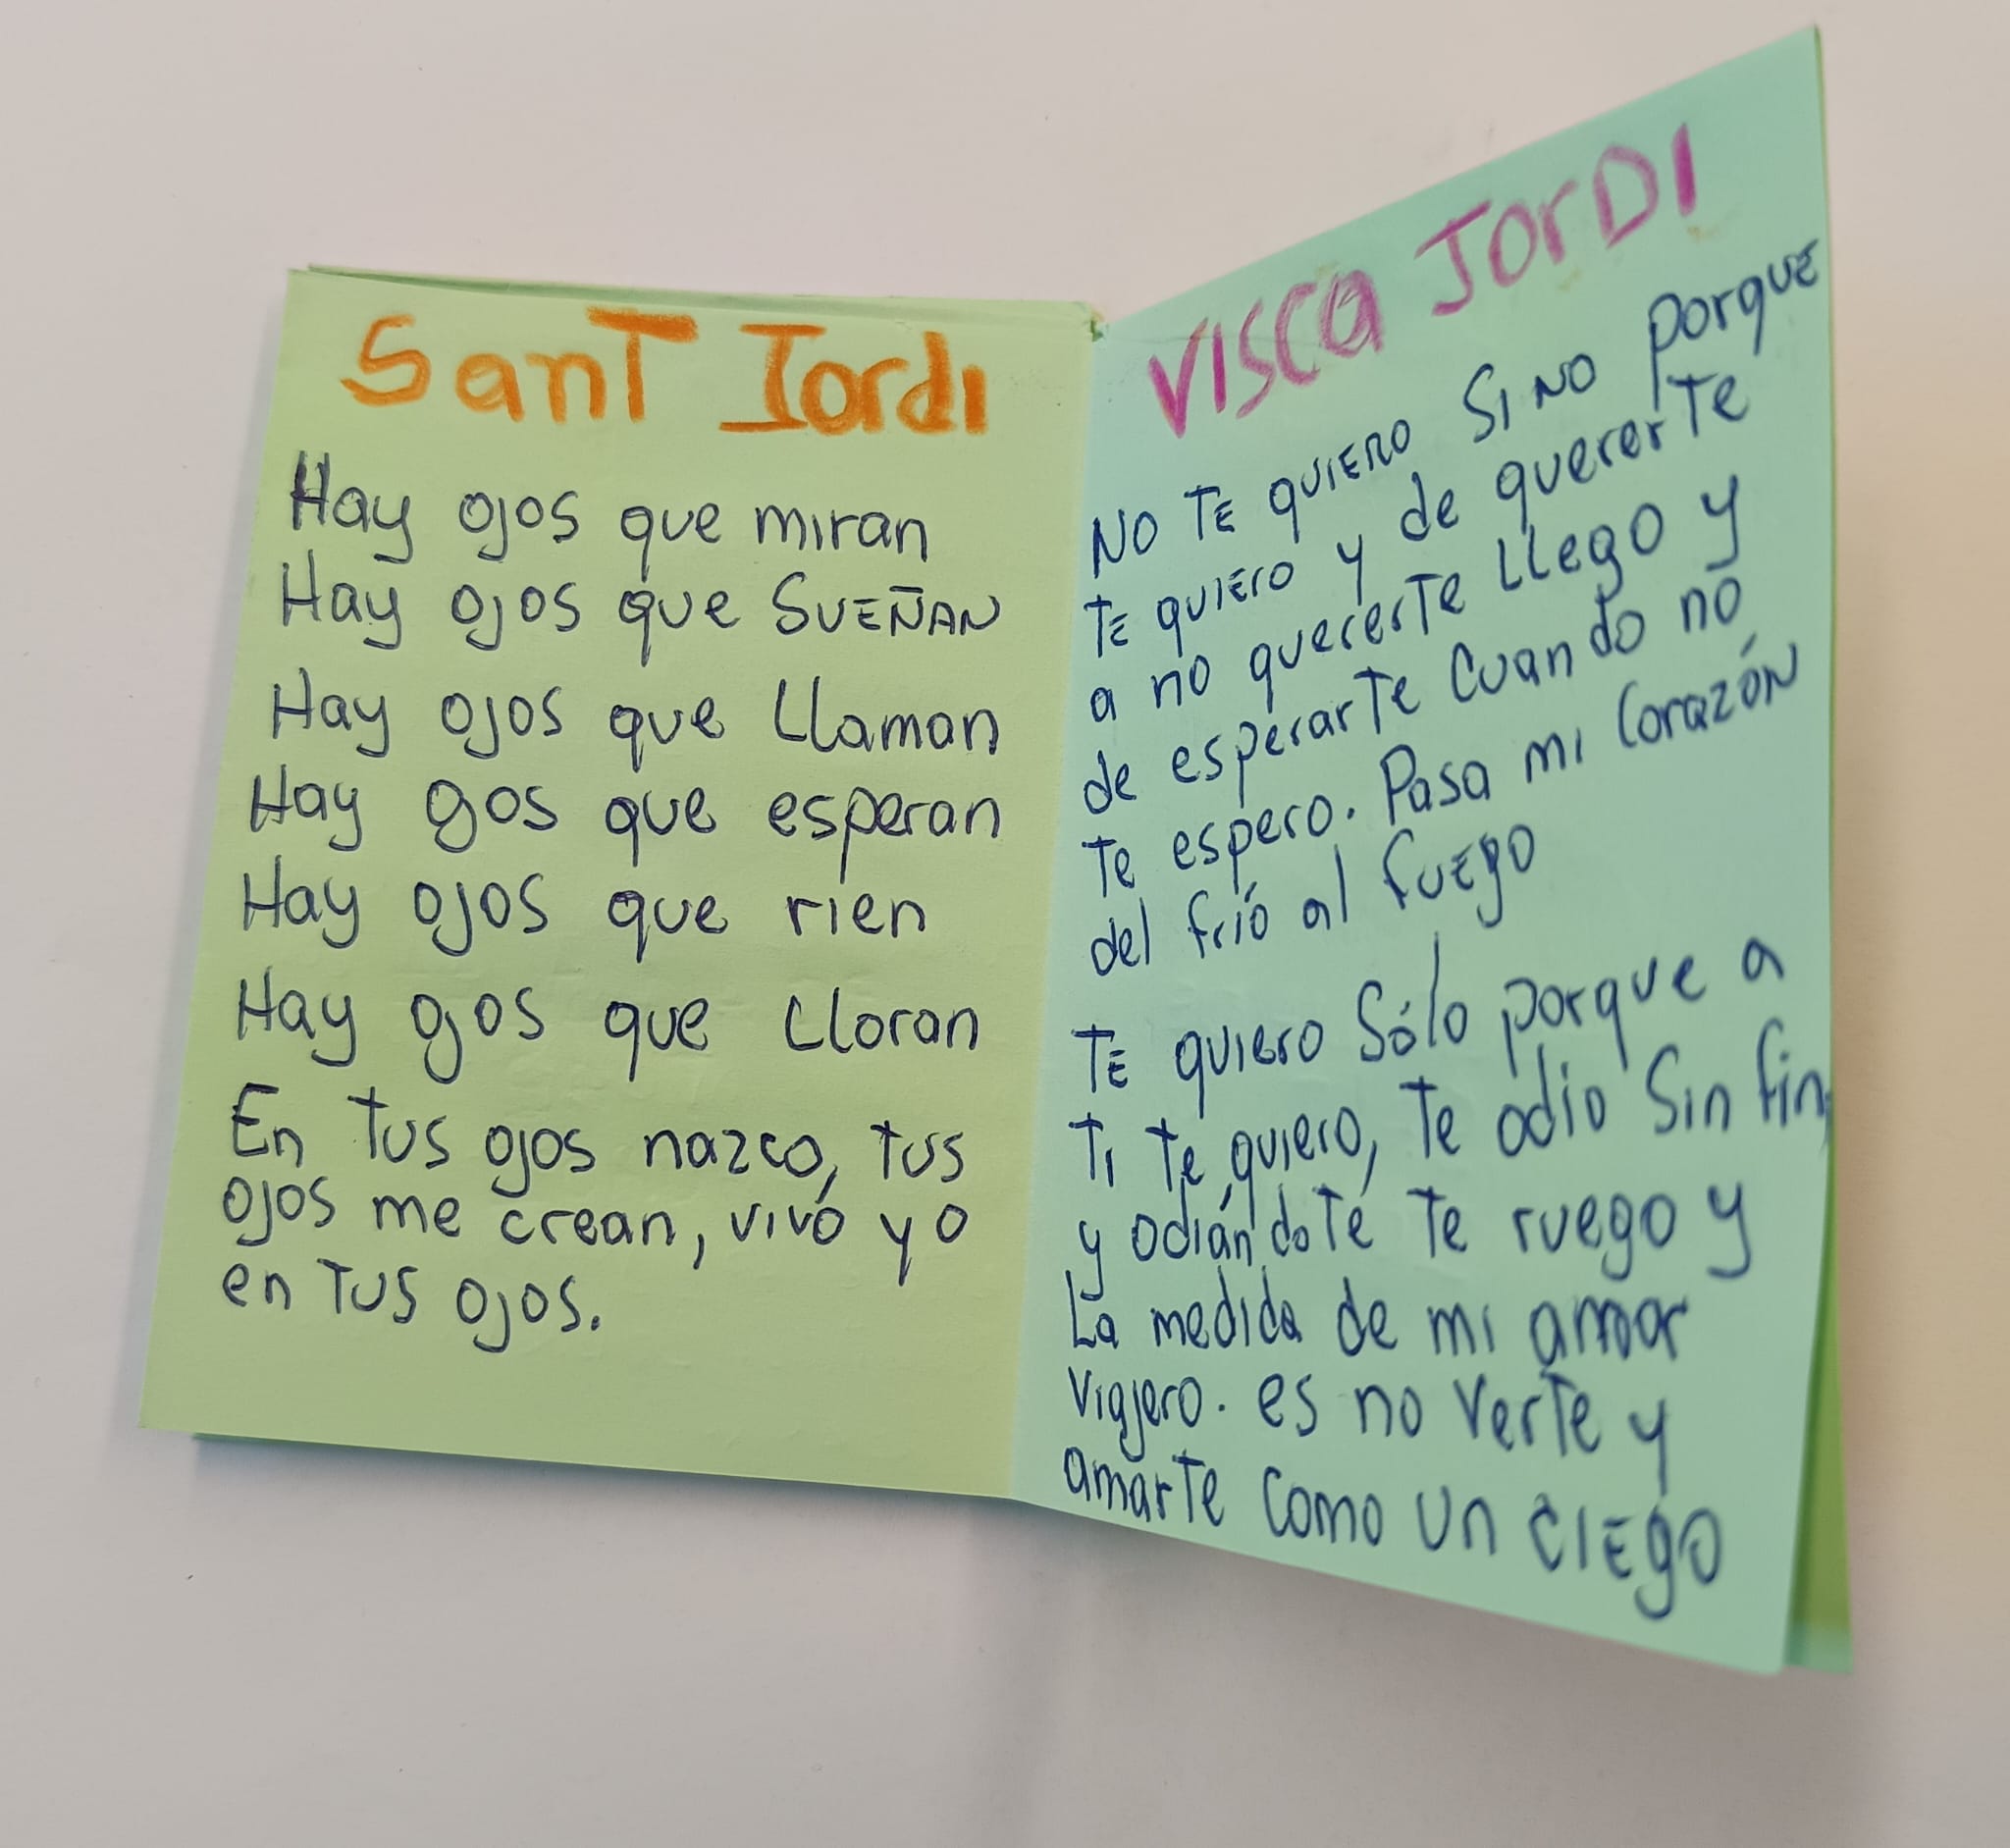 SanT Jordi
Hay ojos que miran
Hay ojos que SUEÑAN
Hay ojos que Llaman
Hay ojos que esperan
Hay ojos que rien
Hay ojos que Lloran
En Tus ojos nazco, tus
ojos me crean, vivó yo
en Tus ojos.
VISCa JorDI
NO TE QUIERO SINO porque
TE QUIERO y de quererTe
a no quererTe LLego y
de esperarTe Cuando no
Te espero. Pasa mi Corazón
del frió al fuego
TE quiero Sólo porque a
Ti Te quiero, Te odio Sin fin,
y odiándoTé Te ruego y
La medida de mi amor
viajero. es no verTe y
amarTe Como un CIEgo